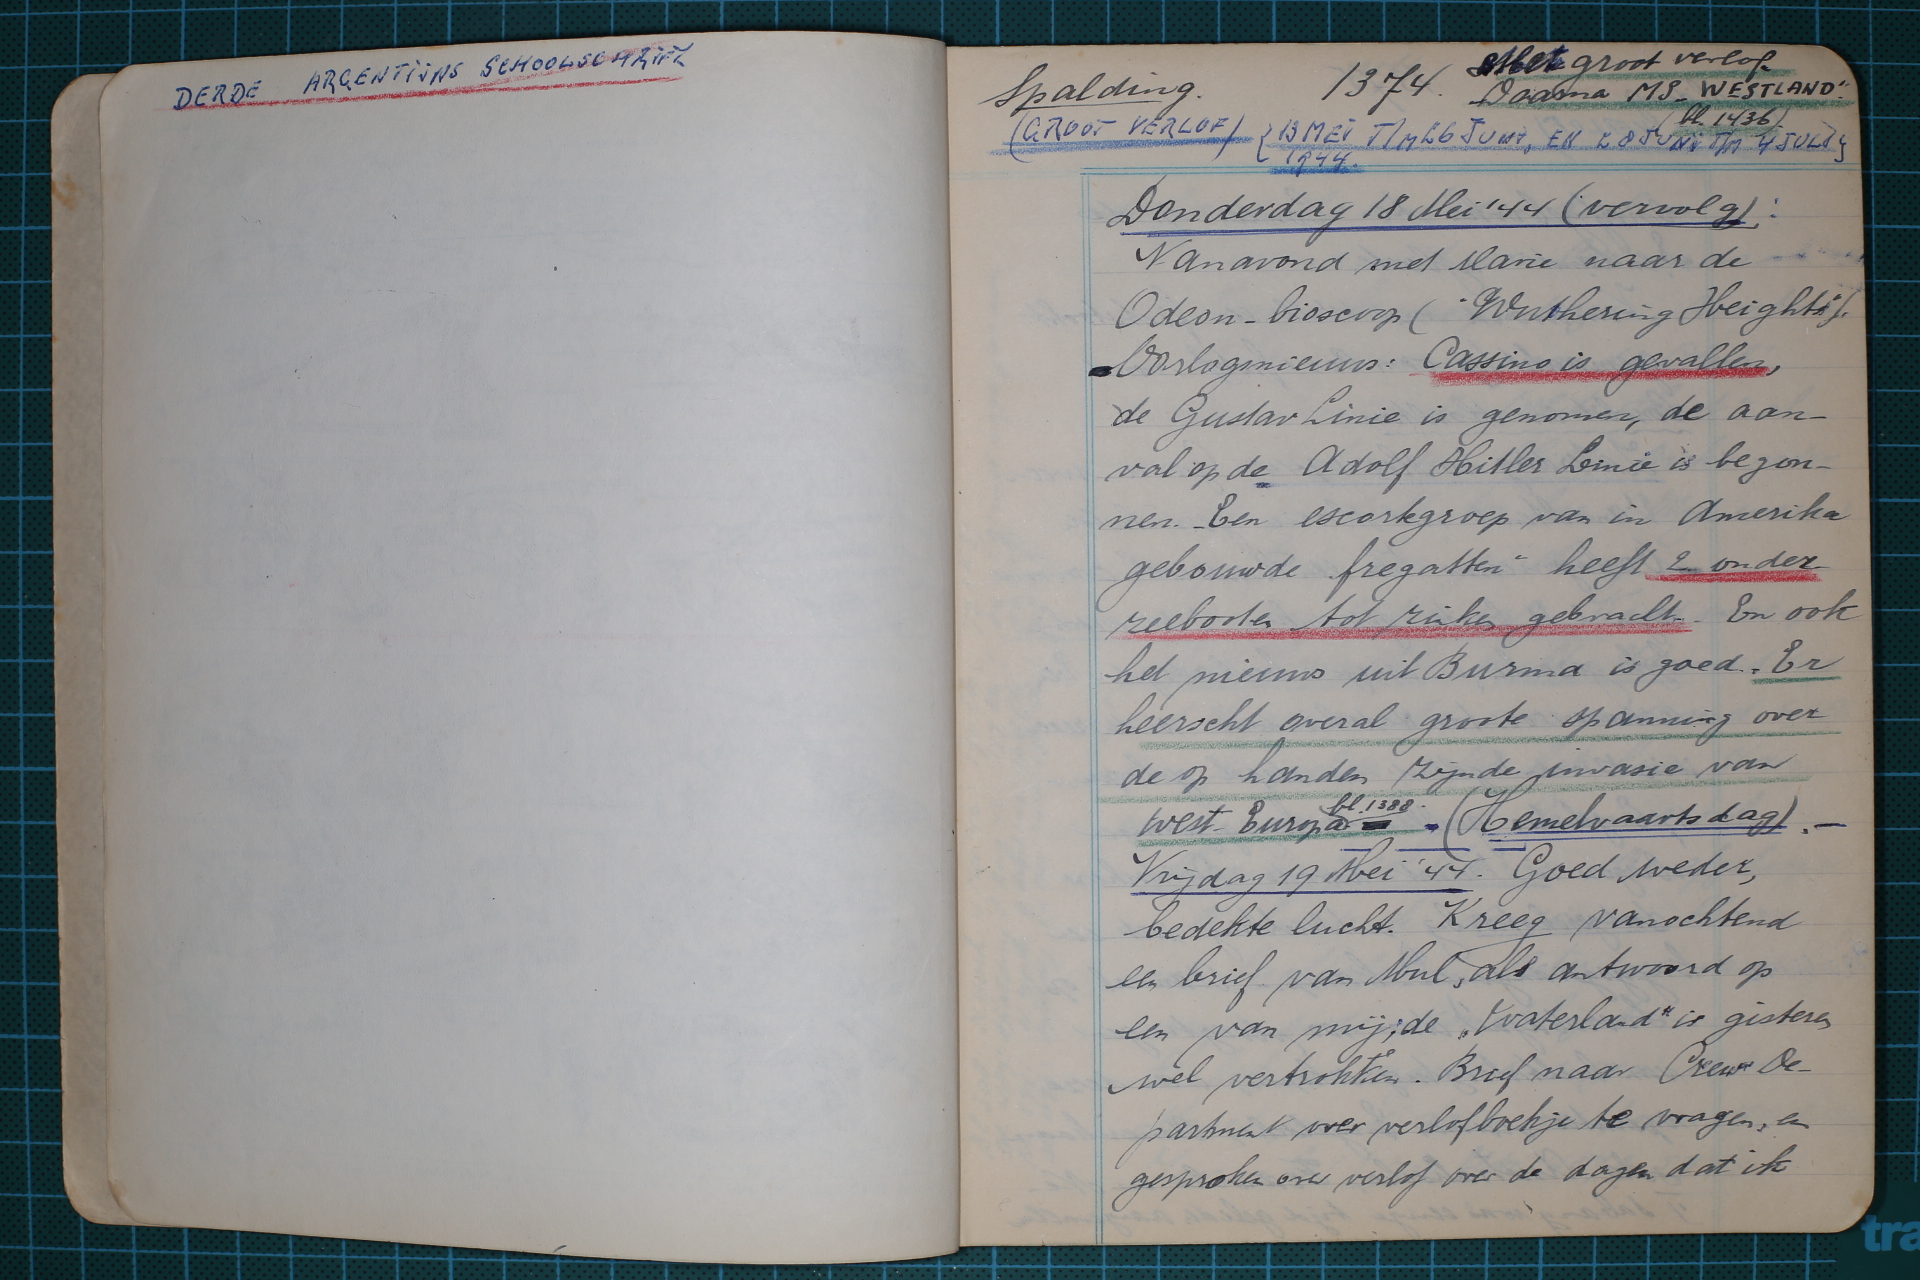 DERDE ARGENTIJNS SCHOOLSCHRIFT
Spalding. 1374. Met groot verlof.
Daarna MS „WESTLAND"
(bl. 1436)
(GROOT VERLOF) {13 MEI T/M 26 JUNI, EN 28 JUNI T/M 4 JULI}
1944.
Donderdag 18 Mei '44 (vervolg):
Vanavond met Marie naar de
Odeon-bioscoop ("Wuthering Heights").
Oorlogsnieuws: Cassino is gevallen,
de Gustav Linie is genomen, de aan-
val op de Adolf Hitler Linie is begon-
nen. - Een escortgroep van in Amerika
gebouwde „fregatten" heeft 2 onder
zeeboten tot zinken gebracht. En ook
het nieuws uit Burma is goed. Er
heerscht overal groote spanning over
de op handen zijnde invasie van
West-Europa bl. 1388. - (Hemelvaartsdag). -
Vrijdag 19 Mei '44. Goed weder,
bedekte lucht. Kreeg vanochtend
een brief van Mul, als antwoord op
een van mij; de „Waterland" is gisteren
wel vertrokken. Brief naar Crew De-
partment over verlofboekje te vragen, en
gesproken over verlof over de dagen dat ik
tra